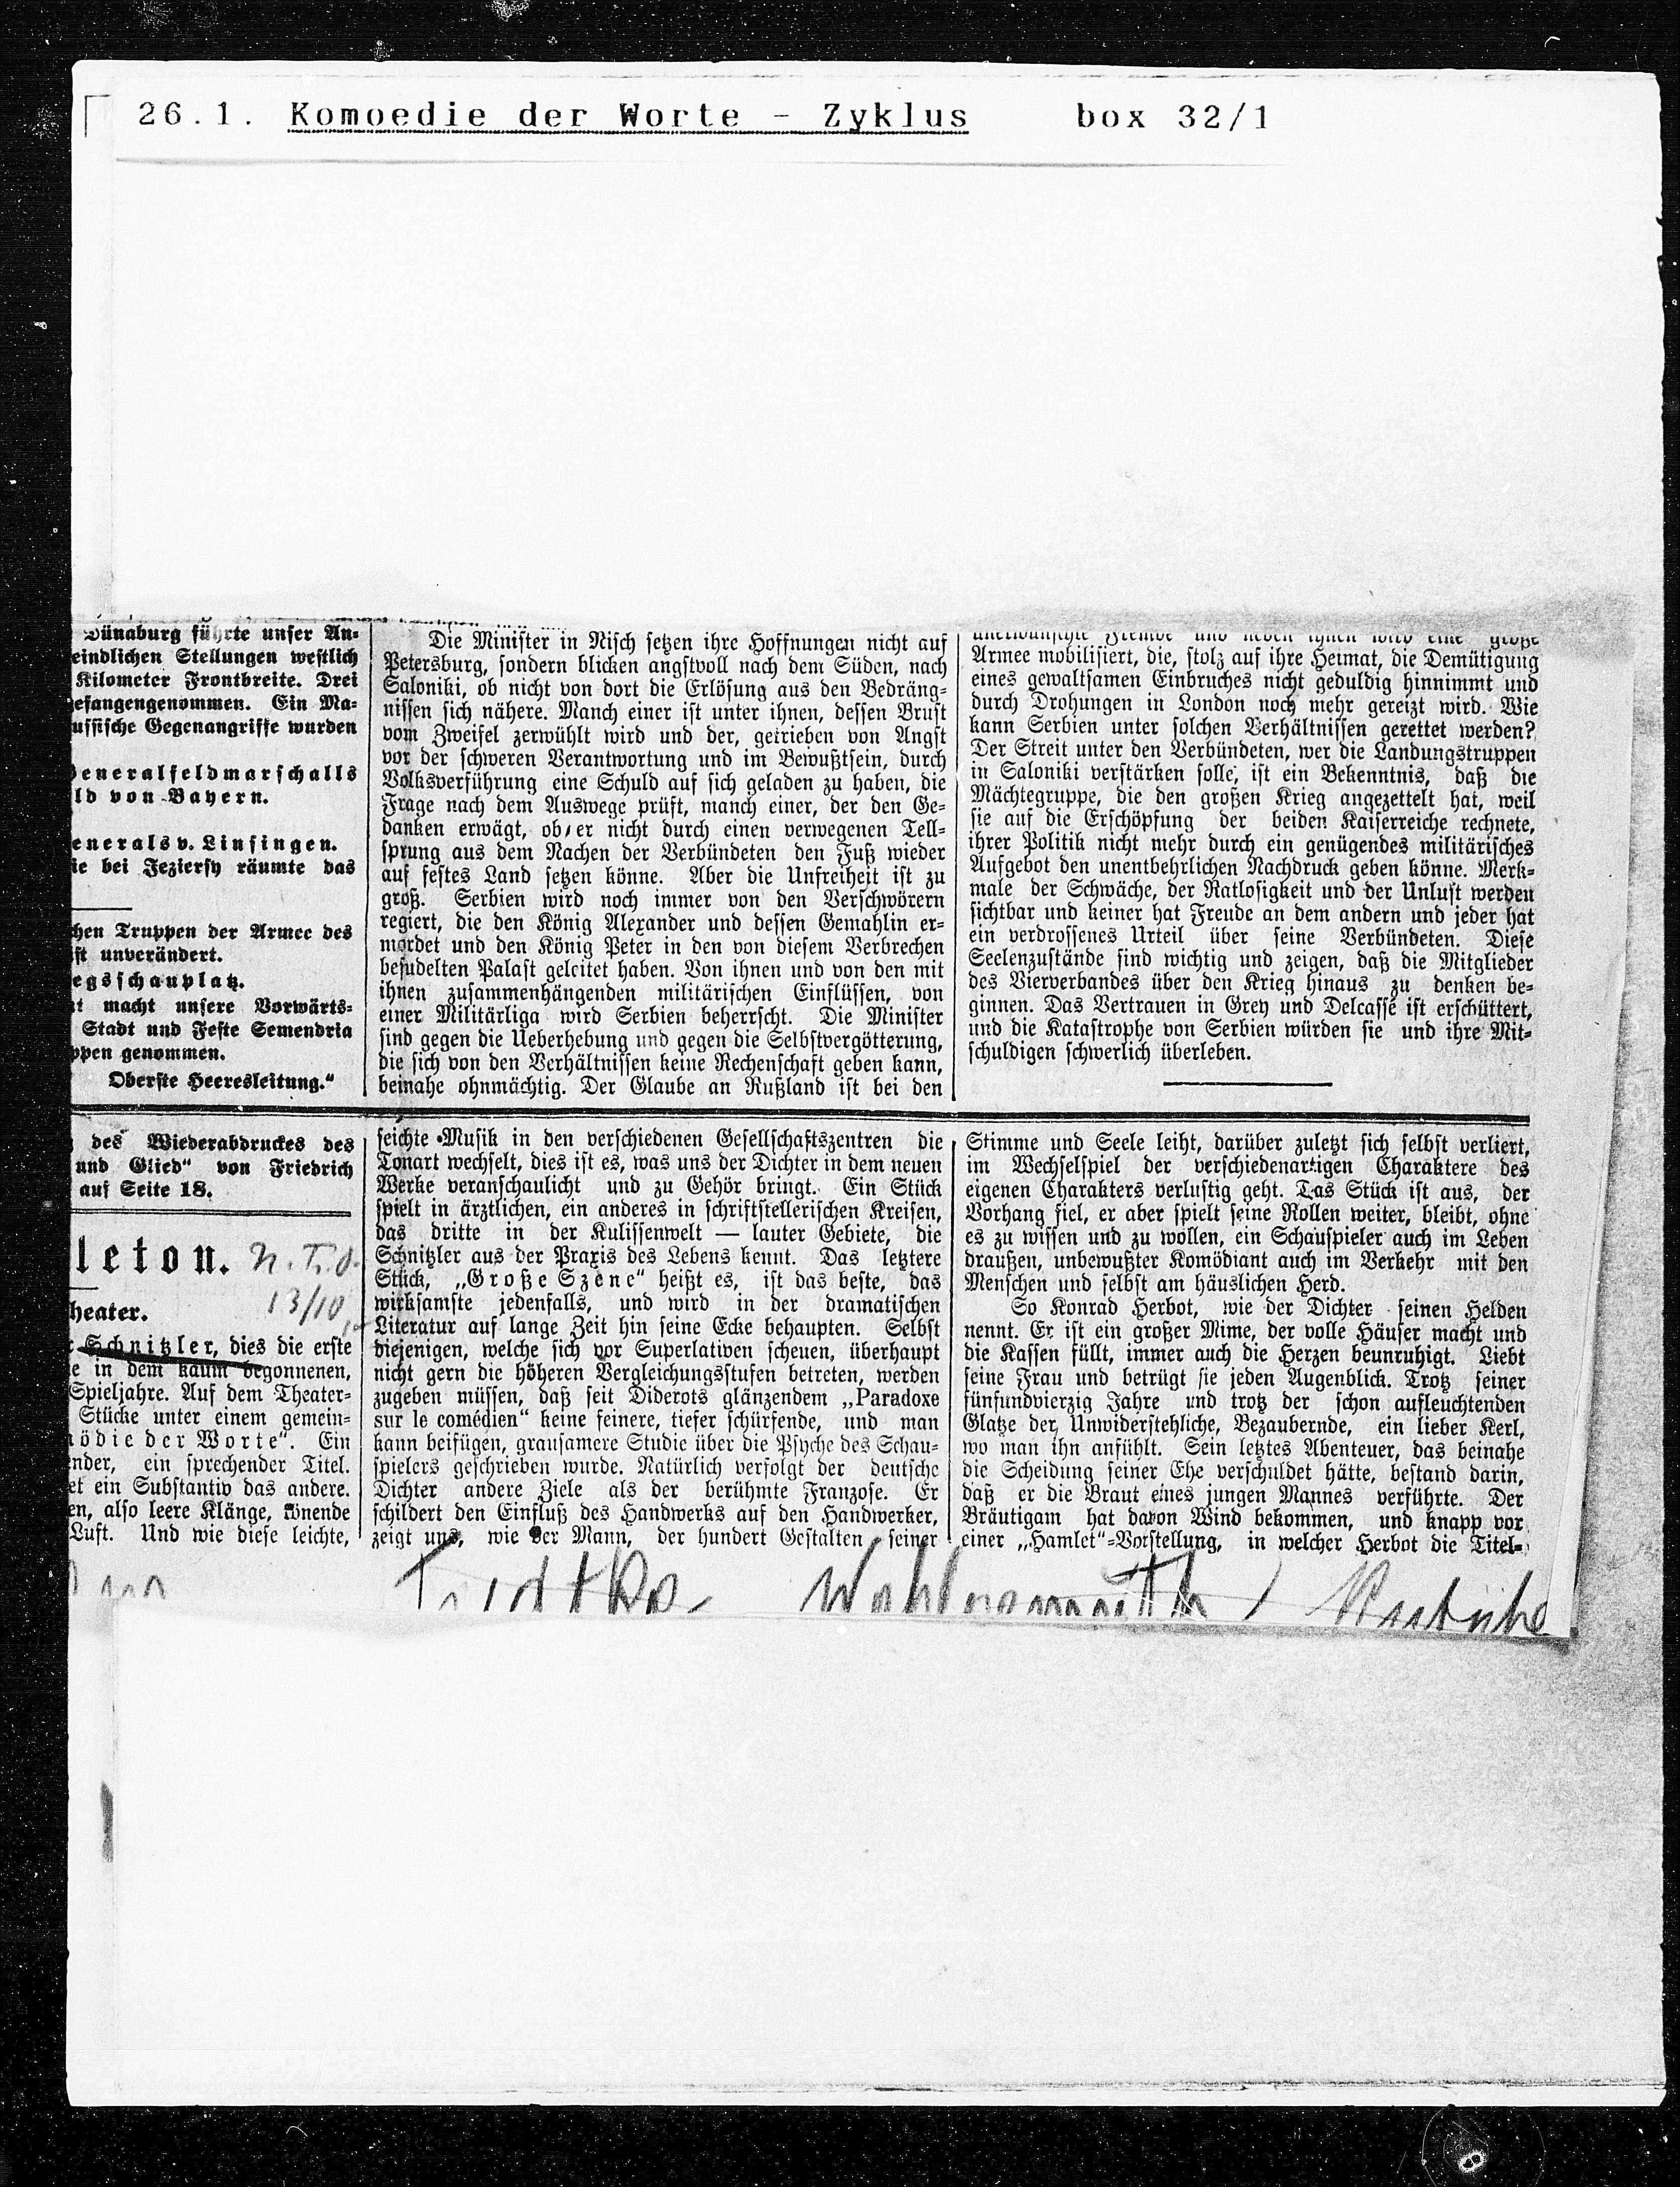 26.1. Komoedie der Worte - Zyklus box 32/1
Dünaburg führte unser An-
eindlichen Stellungen westlich
Kilometer Frontbreite. Drei
gefangengenommen. Ein Ma-
ussische Gegenangriffe wurden
Generalfeldmarschalls
ld von Bayern.
enerals v. Linsingen.
ie bei Jeziersy räumte das
hen Truppen der Armee des
ist unverändert.
egsschauplatz.
macht unsere Vorwärts-
Stadt und Feste Semendria
ppen genommen.
Oberste Heeresleitung."
Die Minister in Nisch setzen ihre Hoffnungen nicht auf
Petersburg, sondern blicken angstvoll nach dem Süden, nach
Saloniki, ob nicht von dort die Erlösung aus den Bedräng-
nissen sich nähere. Manch einer ist unter ihnen, dessen Brust
vom Zweifel zerwühlt wird und der, getrieben von Angst
vor der schweren Verantwortung und im Bewußtsein, durch
Volksverführung eine Schuld auf sich geladen zu haben, die
Frage nach dem Auswege prüft, manch einer, der den Ge-
danken erwägt, ob er nicht durch einen verwegenen Tell-
sprung aus dem Nachen der Verbündeten den Fuß wieder
auf festes Land setzen könne. Aber die Unfreiheit ist zu
groß. Serbien wird noch immer von den Verschwörern
regiert, die den König Alexander und dessen Gemahlin er-
mordet und den König Peter in den von diesem Verbrechen
besudelten Palast geleitet haben. Von ihnen und von den mit
ihnen zusammenhängenden militärischen Einflüssen, von
einer Militärliga wird Serbien beherrscht. Die Minister
sind gegen die Ueberhebung und gegen die Selbstvergötterung,
die sich von den Verhältnissen keine Rechenschaft geben kann,
beinahe ohnmächtig. Der Glaube an Rußland ist bei den
unerwünschte Fremde und neben ihnen wird eine große
Armee mobilisiert, die, stolz auf ihre Heimat, die Demütigung
eines gewaltsamen Einbruches nicht geduldig hinnimmt und
durch Drohungen in London noch mehr gereizt wird. Wie
kann Serbien unter solchen Verhältnissen gerettet werden?
Der Streit unter den Verbündeten, wer die Landungstruppen
in Saloniki verstärken solle, ist ein Bekenntnis, daß die
Mächtegruppe, die den großen Krieg angezettelt hat, weil
sie auf die Erschöpfung der beiden Kaiserreiche rechnete,
ihrer Politik nicht mehr durch ein genügendes militärisches
Aufgebot den unentbehrlichen Nachdruck geben könne. Merk-
male der Schwäche, der Ratlosigkeit und der Unlust werden
sichtbar und keiner hat Freude an dem andern und jeder hat
ein verdrossenes Urteil über seine Verbündeten. Diese
Seelenzustände sind wichtig und zeigen, daß die Mitglieder
des Vierverbandes über den Krieg hinaus zu denken be-
ginnen. Das Vertrauen in Grey und Delcassé ist erschüttert,
und die Katastrophe von Serbien würden sie und ihre Mit-
schuldigen schwerlich überleben.
des Wiederabdruckes des
und Glied" von Friedrich
auf Seite 18.
leton. N. Fr. P.
heater. 13/10
Schnitzler, dies die erste
e in dem kaum begonnenen,
Spieljahre. Auf dem Theater-
Stücke unter einem gemein-
ödie der Worte". Ein
nder, ein sprechender Titel.
et ein Substantiv das andere.
en, also leere Klänge, tönende
Luft. Und wie diese leichte,
seichte Musik in den verschiedenen Gesellschaftszentren die
Tonart wechselt, dies ist es, was uns der Dichter in dem neuen
Werke veranschaulicht und zu Gehör bringt. Ein Stück
spielt in ärztlichen, ein anderes in schriftstellerischen Kreisen,
das dritte in der Kulissenwelt — lauter Gebiete, die
Schnitzler aus der Praxis des Lebens kennt. Das letztere
Stück, „Große Szene" heißt es, ist das beste, das
wirksamste jedenfalls, und wird in der dramatischen
Literatur auf lange Zeit hin seine Ecke behaupten. Selbst
diejenigen, welche sich vor Superlativen scheuen, überhaupt
nicht gern die höheren Vergleichungsstufen betreten, werden
zugeben müssen, daß seit Diderots glänzendem „Paradoxe
sur le comédien" keine feinere, tiefer schürfende, und man
kann beifügen, grausamere Studie über die Psyche des Schau-
spielers geschrieben wurde. Natürlich verfolgt der deutsche
Dichter andere Ziele als der berühmte Franzose. Er
schildert den Einfluß des Handwerks auf den Handwerker,
zeigt uns, wie der Mann, der hundert Gestalten seiner
Stimme und Seele leiht, darüber zuletzt sich selbst verliert,
im Wechselspiel der verschiedenartigen Charaktere des
eigenen Charakters verlustig geht. Das Stück ist aus, der
Vorhang fiel, er aber spielt seine Rollen weiter, bleibt, ohne
es zu wissen und zu wollen, ein Schauspieler auch im Leben
draußen, unbewußter Komödiant auch im Verkehr mit den
Menschen und selbst am häuslichen Herd.
So Konrad Herbot, wie der Dichter seinen Helden
nennt. Er ist ein großer Mime, der volle Häuser macht und
die Kassen füllt, immer auch die Herzen beunruhigt. Liebt
seine Frau und betrügt sie jeden Augenblick. Trotz seiner
fünfundvierzig Jahre und trotz der schon aufleuchtenden
Glatze der Unwiderstehliche, Bezaubernde, ein lieber Kerl,
wo man ihn anfühlt. Sein letztes Abenteuer, das beinahe
die Scheidung seiner Ehe verschuldet hätte, bestand darin,
daß er die Braut eines jungen Mannes verführte. Der
Bräutigam hat davon Wind bekommen, und knapp vor
einer „Hamlet"-Vorstellung, in welcher Herbot die Titel-